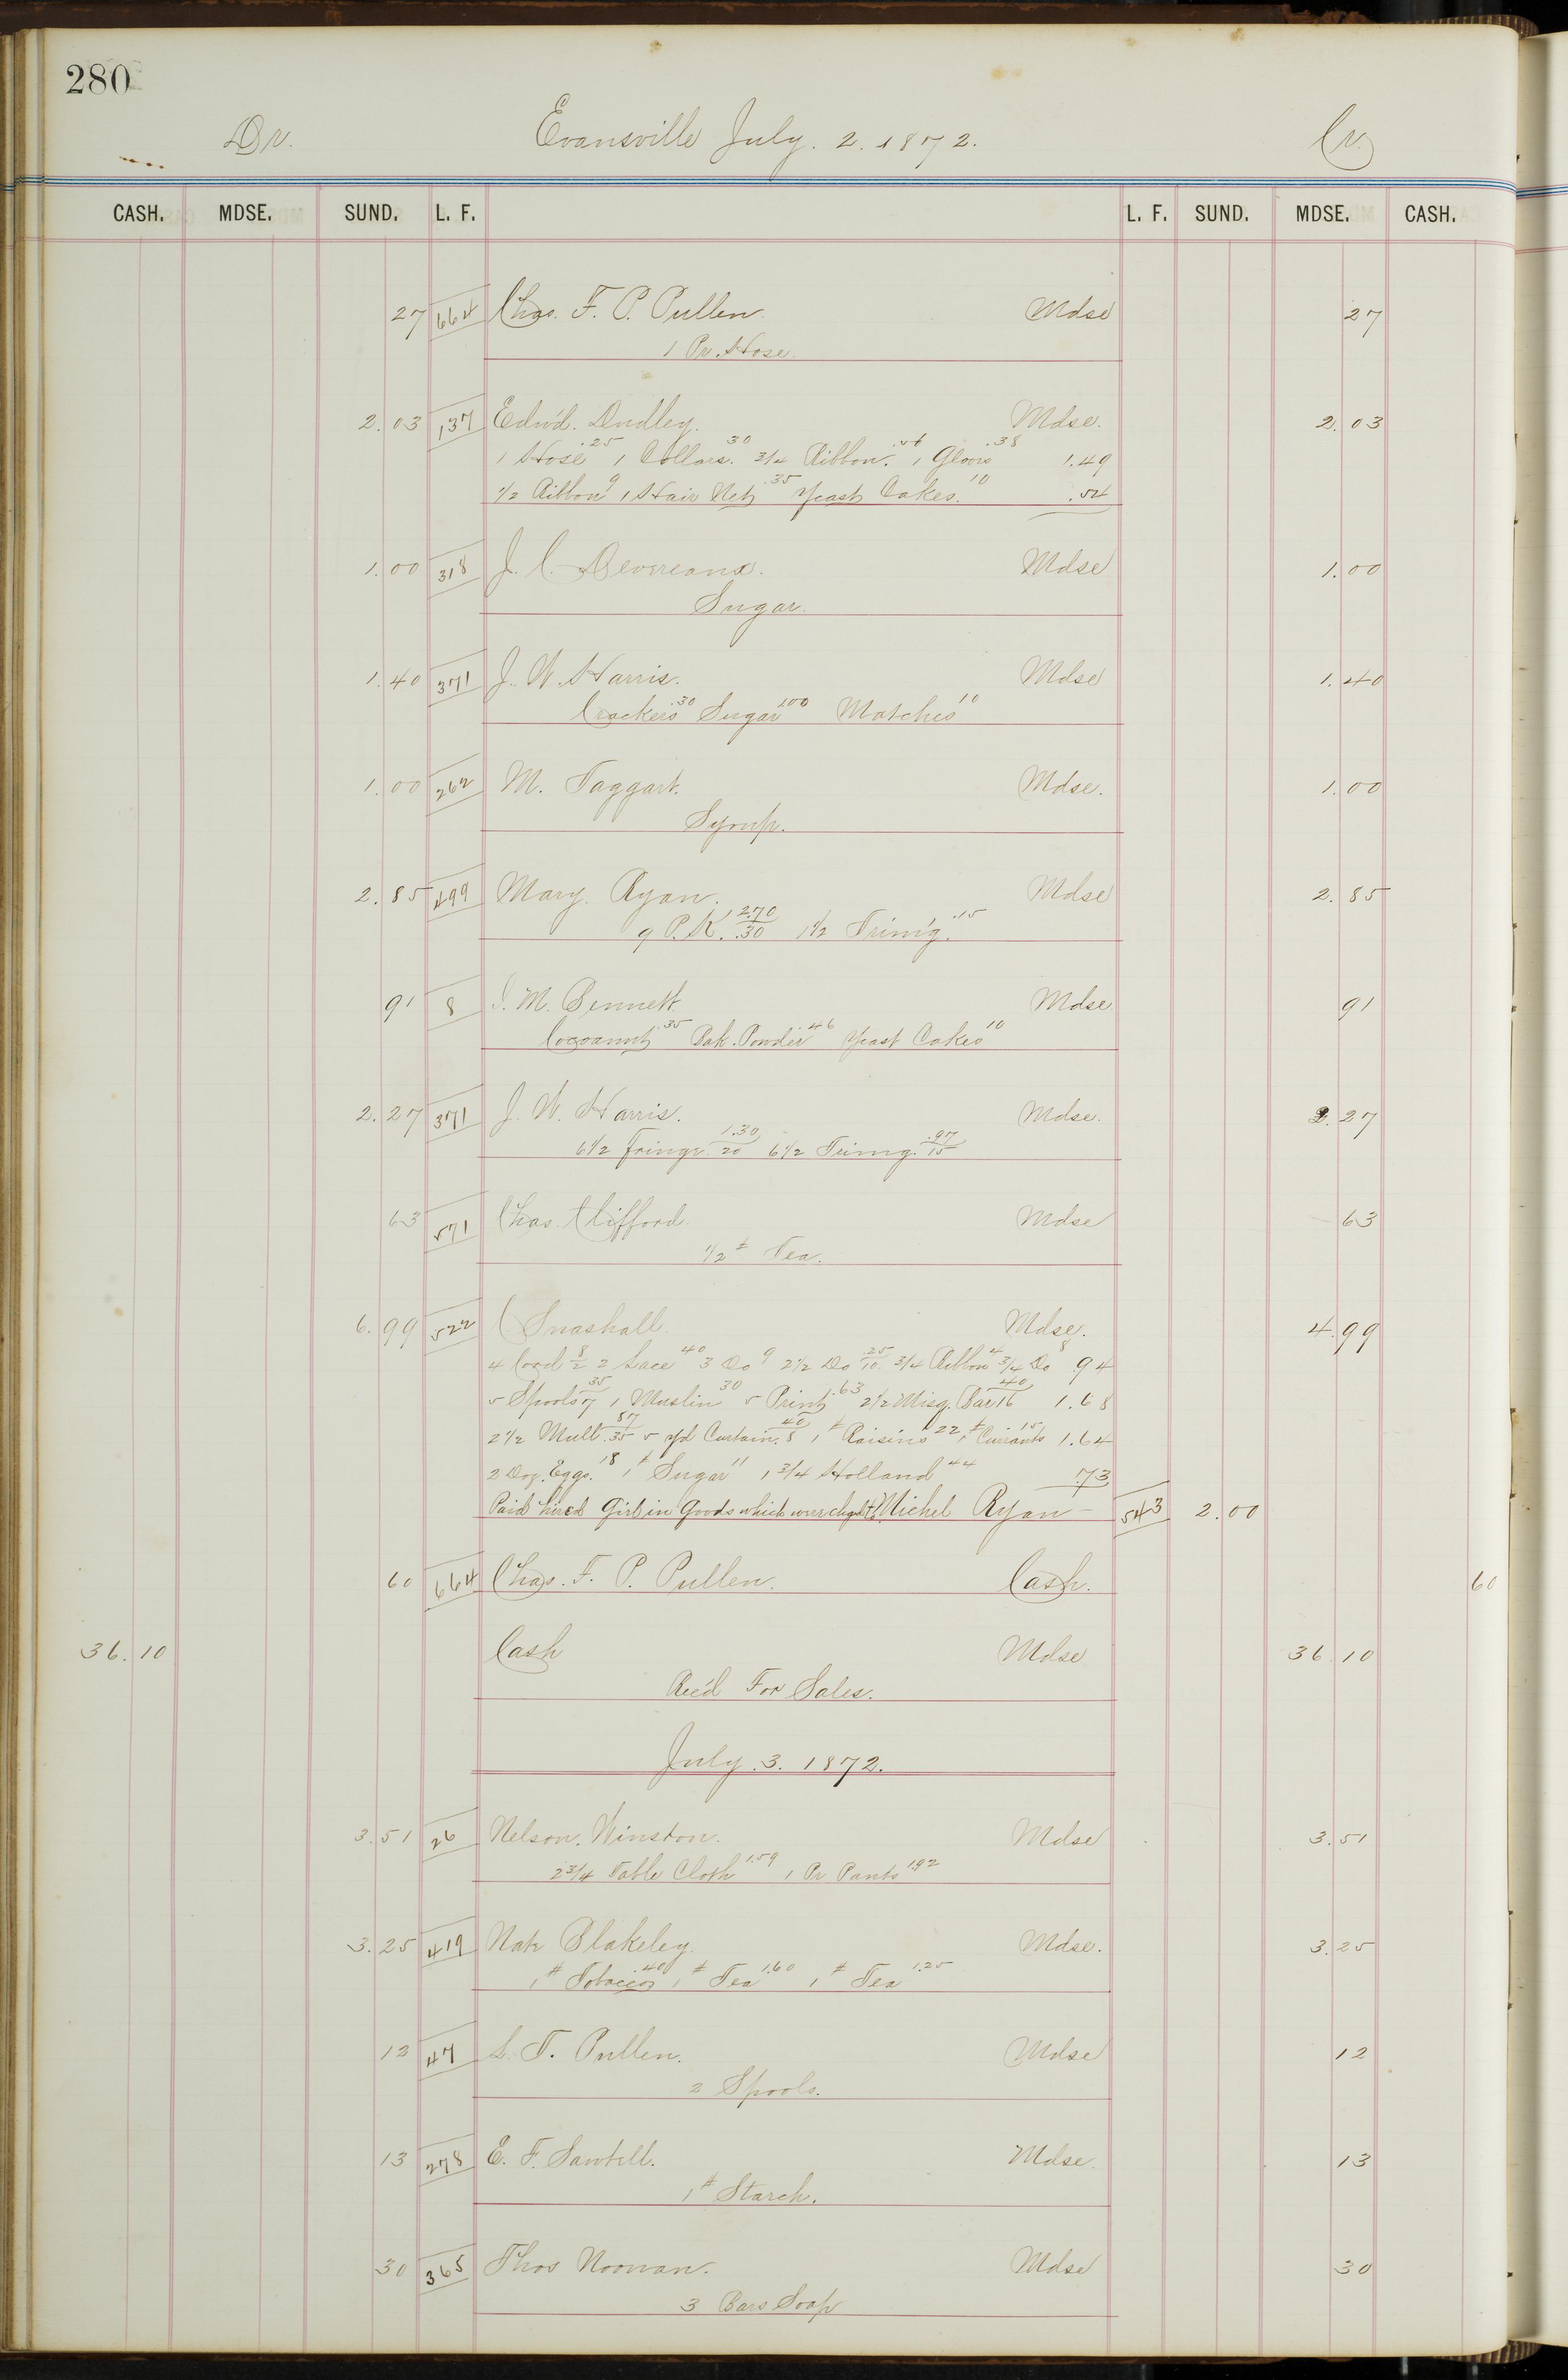 280
Dr. Evansville July. 2. 1872. Cr.
CASH. MDSE. SUND. L. F. L. F. SUND. MDSE. CASH.
27 664 Chas. F. P. Pullen. Mdse 27
1 Pr. Hose.
2.03 137 Edw'd. Dudley. Mdse. 2.03
1 Hose .25 1 Collars. 30 3/4 Ribbon. .56 1 Gloves .38 1.49
1/2 Ribbon 9 1 Hair Net .35 Yeast Cakes. 10 .54
1.00 318 J. C. Devereaux. Mdse 1.00
Sugar.
1.40 371 J. W. Harris. Mdse 1.40
Crackers .30 Sugar 1.00 Matches 10
1.00 262 M. Taggart. Mdse. 1.00
Syrup.
2.85 499 Mary Ryan. Mdse 2.85
9 P.K. 2.70/.30 1 1/2 Trim'g. .15
91 8 I. M. Bennett Mdse. 91
Cocoanut .35 Bak. Powder .46 Yeast Cakes 10
2.27 371 J. W. Harris. Mdse. 2.27
6 1/2 Fringe 1.30/20 6 1/2 Trimg. .97/15
63 571 Chas. Clifford. Mdse 63
1/2 # Tea.
6.99 522 C Snashall. Mdse. 4.99
4 Cord 8/2 2 Lace 40 3 Do 9 2 1/2 Do .25/10 3/4 Ribbon 4 3/4 Do 8 .94
5 Spools 35/7 1 Muslin 30 5 Print .63 2 1/2 Misq. Bar 40/16 1.68
2 1/2 Mull .87/.35 5 yd Curtain. 40/8 1 # Raisins 22 1 # Currants .15 1.64
2 Doz. Eggs. 18 1 # Sugar 11 1 3/4 Holland 44 .73
Paid hired Girl in Goods which were chgd to Michel Ryan — 543 2.00
60 664 Chas. F. P. Pullen. Cash. 60
36.10 Cash Mdse 36.10
Rec'd For Sales.
July. 3. 1872.
3.51 26 Nelson. Winston. Mdse 3.51
2 3/4 Table Cloth 1.59 1 Pr Pants 1.92
3.25 419 Nate Blakeley. Mdse. 3.25
1 # Tobacco .40 1 # Tea 1.60 1 # Tea 1.25
12 47 L. T. Pullen. Mdse 12
2 Spools.
13 278 E. F. Sawtell. Mdse. 13
1 # Starch.
30 365 Thos Noonan. Mdse 30
3 Bars Soap